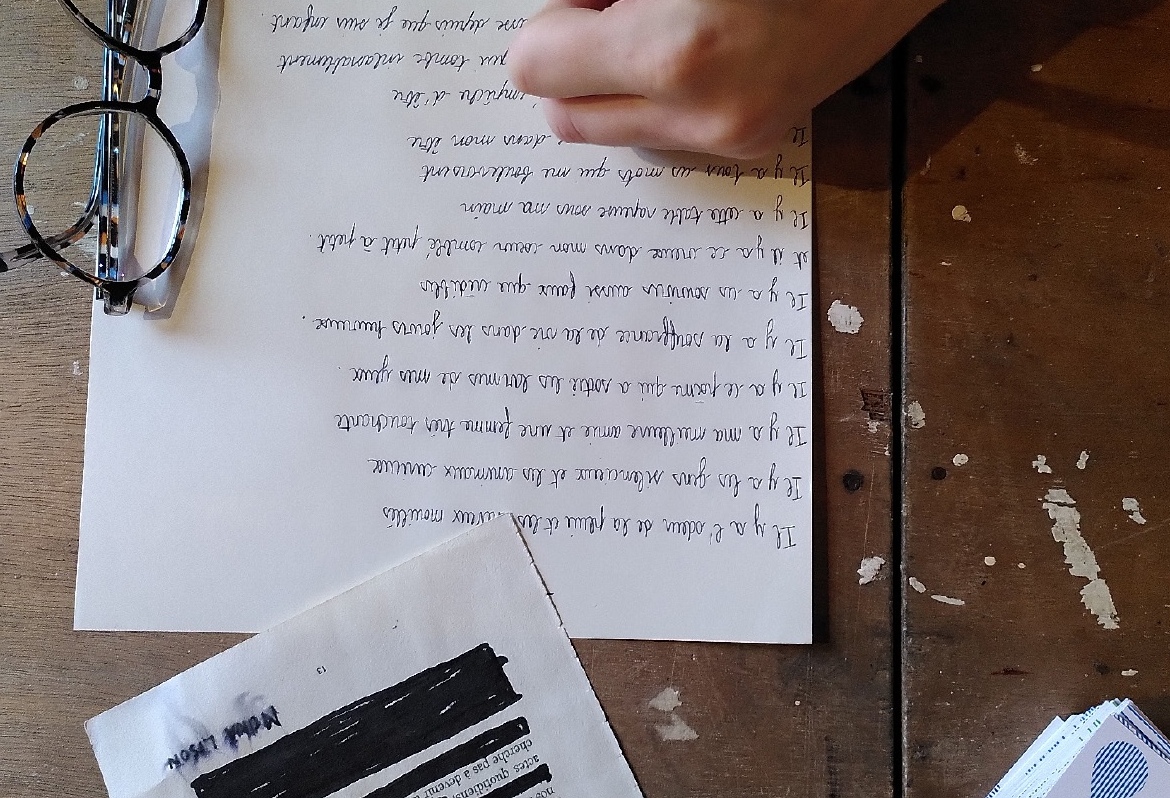 Il y a l'odeur de la pluie et les cheveux mouillés
Il y a les gens silencieux et les animaux curieux
Il y a ma meilleure amie et une femme très touchante
Il y a ce poème qui a sorti les larmes de mes yeux.
Il y a la souffrance de la vie dans les jours heureux.
Il y a ces sourires aussi faux que crédibles
et il y a ce creux dans mon coeur comblé petit à petit.
Il y a cette table rapeuse sous ma main
Il y a tous ces mots qui me bouleversent
Il dans mon être
d'être
qui tombe inlassablement
depuis que je suis enfant.
13
actes quotidiens
cherche pas à devenir